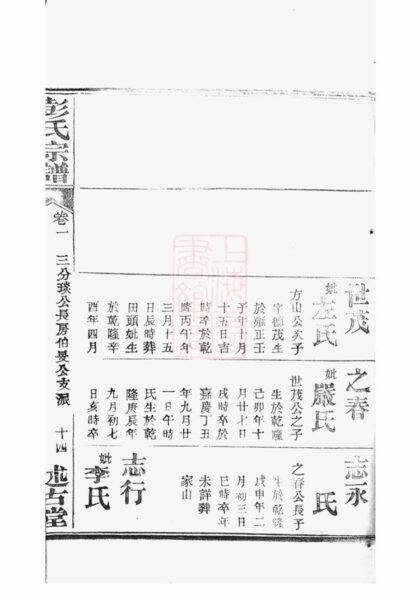 世茂
妣左氏
方山公次子
字德茂生
於雍正壬
子年十月
十五日吉
時卒於乾
隆丙午年
三月十五
日辰時葬
田頭妣生
於乾隆辛
酉年四月
之春
妣嚴氏
世茂公之子
生於乾隆
己卯年十
月廿七日
戌時卒於
嘉慶丁丑
年九月廿
一日午時
氏生於乾
隆庚辰年
九月初七
日亥時卒
志永
氏
之春公長子
生於乾隆
戊申年二
月初三日
巳時卒年
未詳葬
家山
志行
妣李氏
彭氏宗譜
卷一
三分琰公長房伯旻公支派
十四
述古堂